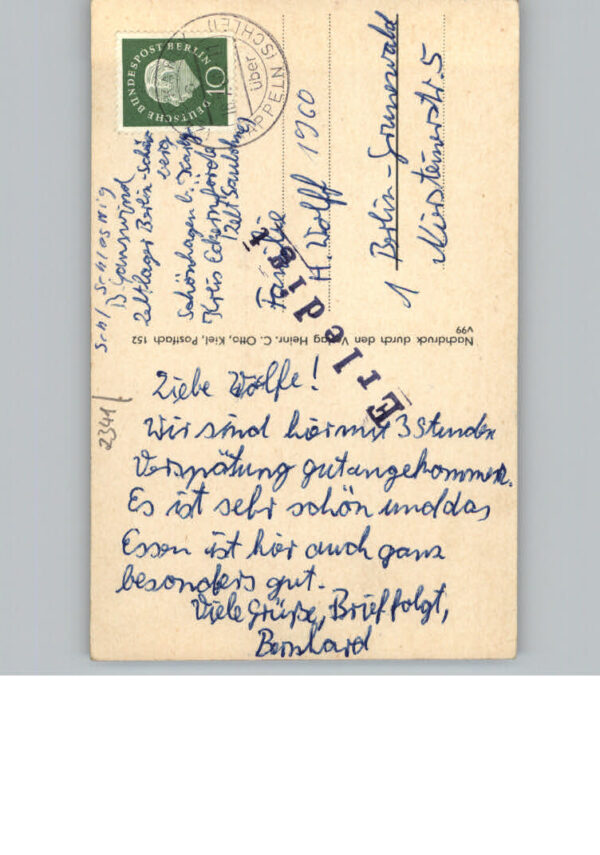 DEUTSCHE BUNDESPOST BERLIN
10
KAPPELN (SCHLEI)
über
Schl Schleswig
B Ganswind
Zeltlager Berlin-Schön
Schönhagen b. Kap
Kreis Eckernförde
Zelt
Familie
H. Wolff 1960
1 Berlin-Grunewald
5
Erledigt
Nachdruck durch den Verlag Heinr. C. Otto, Kiel, Postfach 152
v99
2341/.
Liebe Wölfe!
Wir sind hier mit 3 Stunden
Verspätung gut angekommen.
Es ist sehr schön und das
Essen ist hier auch ganz
besonders gut.
Viele Grüße, Brief folgt,
Bernhard